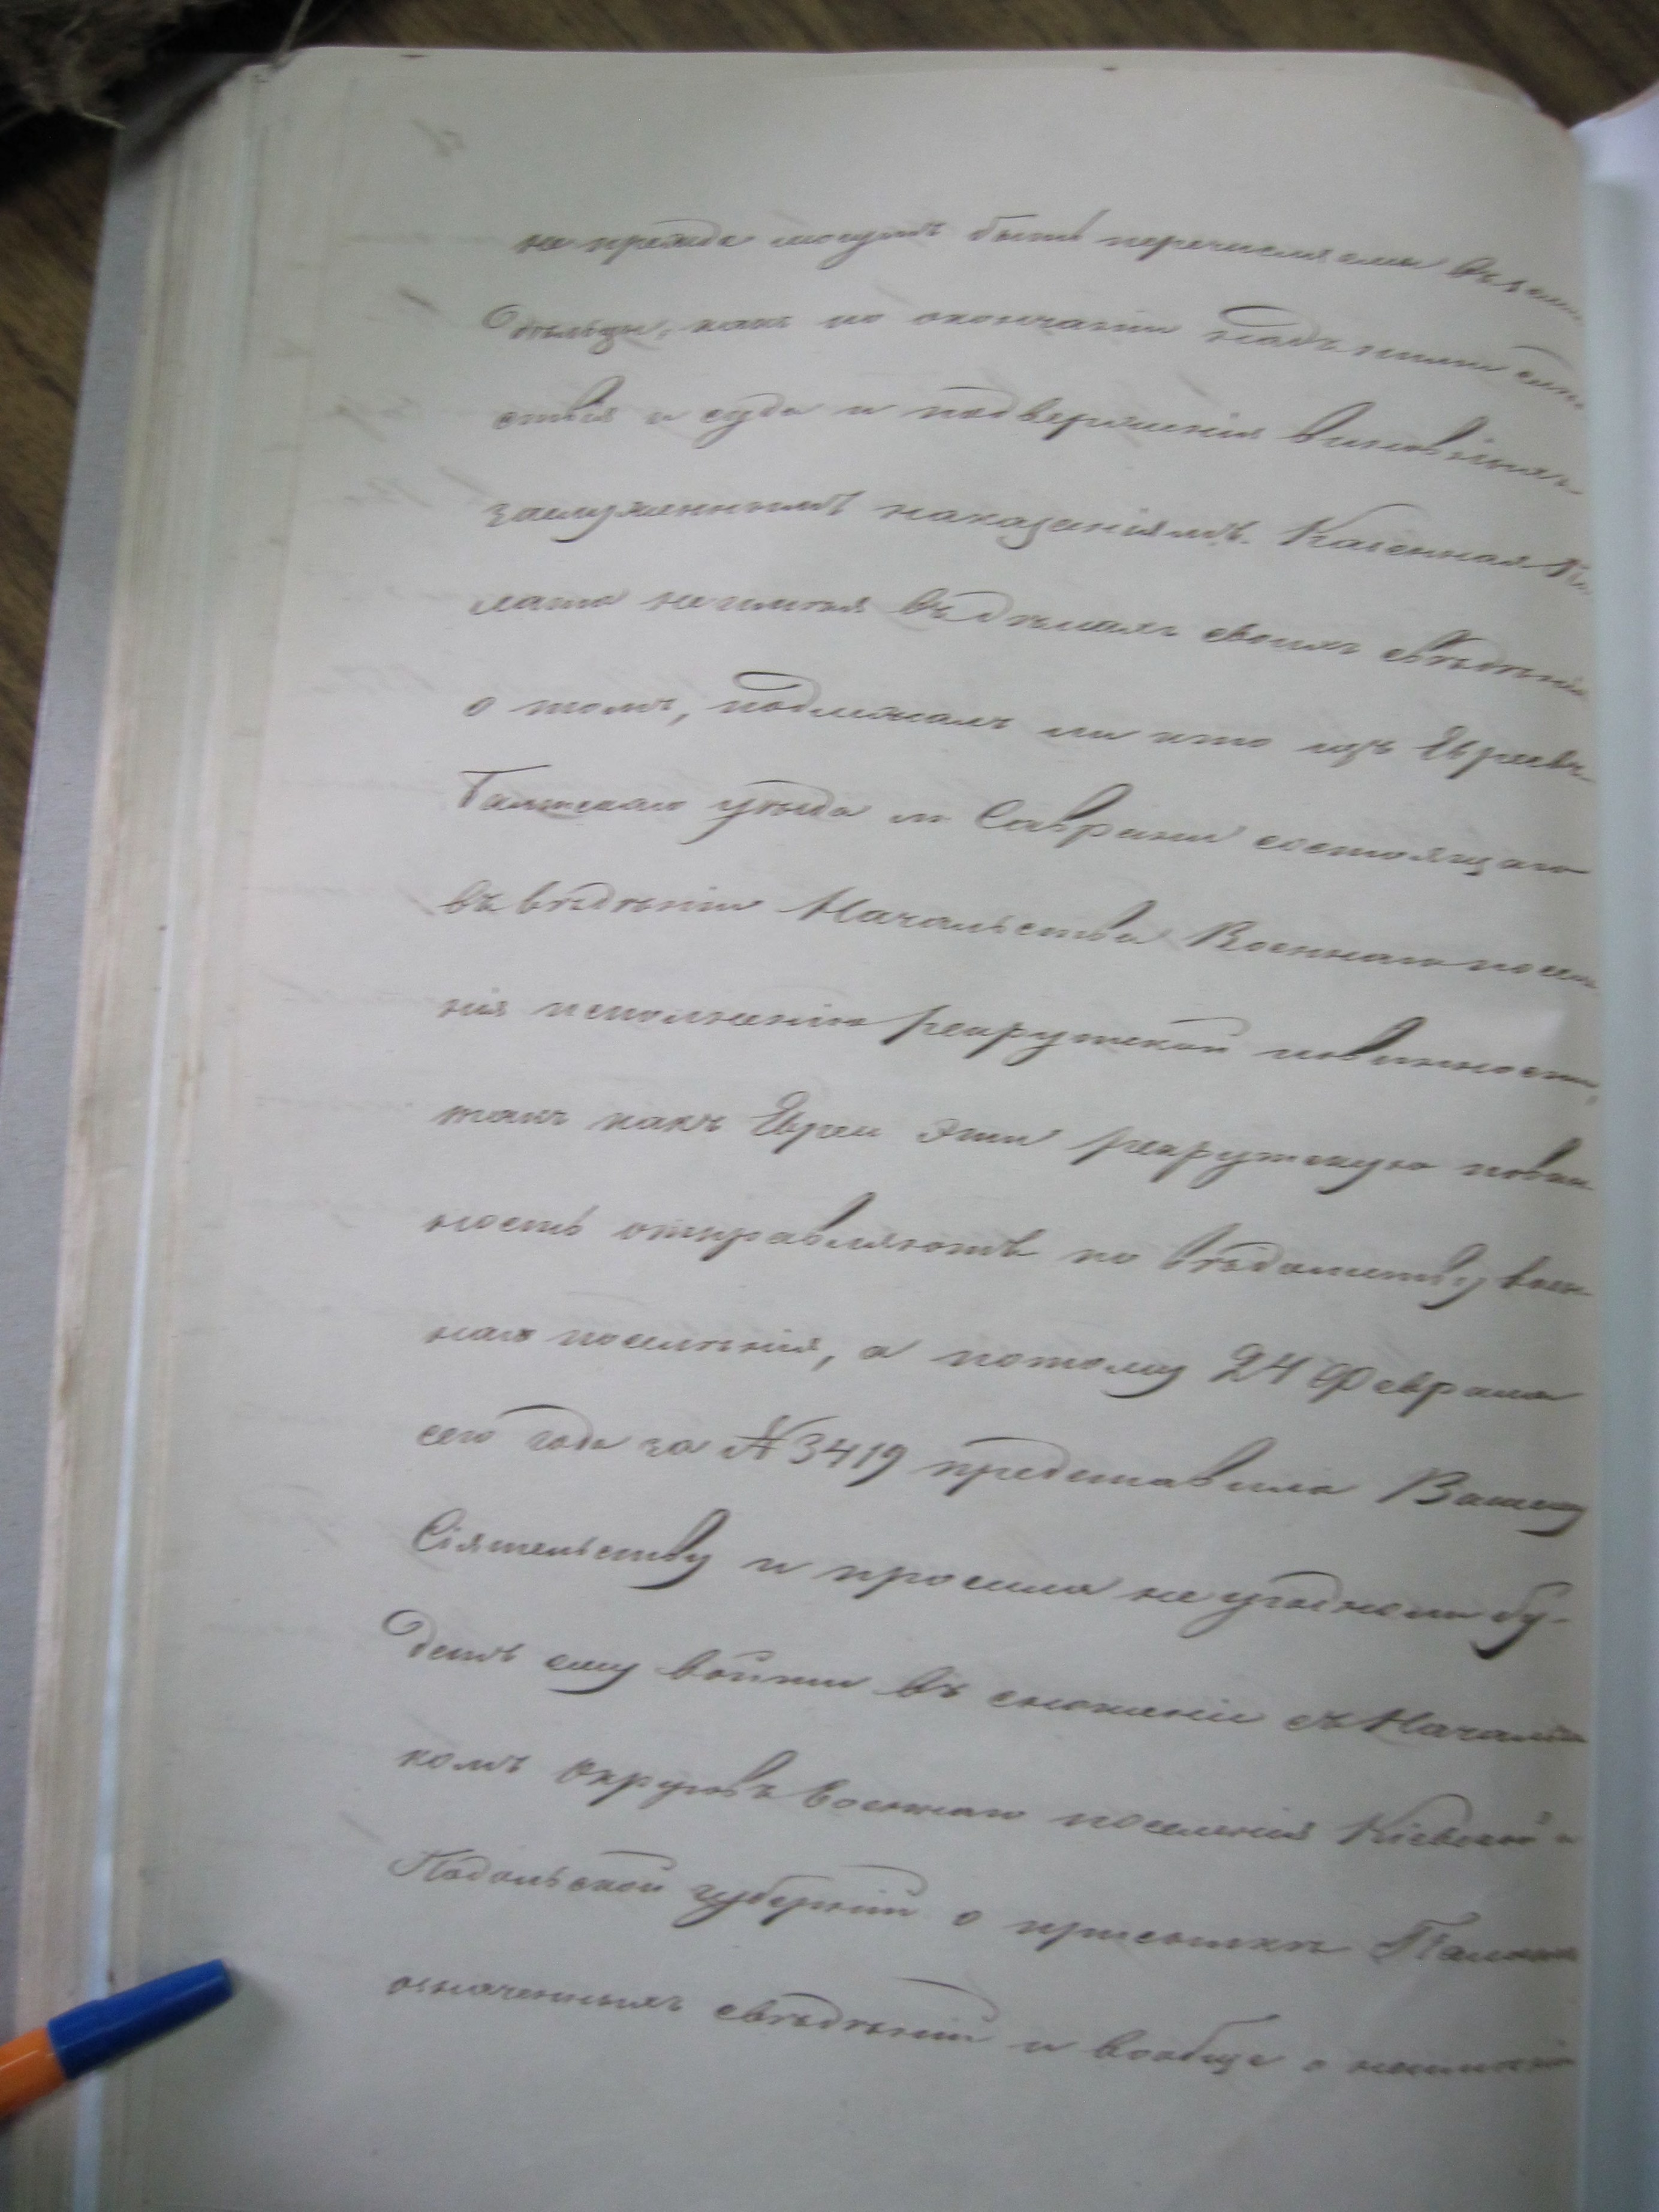 не прежде могутъ быть перечисляемы въ земле
дѣльцы, какъ по окончаніи надъ ними слѣд
ствія и суда и подверженія виновныхъ
заслуженнымъ наказаніямъ. Казенная Па
лата не имѣя въ дѣлахъ своихъ свѣдѣнія
о томъ, подлежалъ ли кто изъ Евреевъ
Балтскаго уѣзда м. Саврани состоящаго
въ вѣдѣніи Начальства Военнаго поселе
нія исполненію рекрутской повинности,
такъ какъ Евреи эти рекрутскую повин
ность отправляютъ по вѣдомству воен
наго поселенія, а потому 24 Февраля
сего года за № 3419 представила Вашему
Сіятельству и просила не угодно ли бу-
детъ ему войти въ сношеніе съ Начальни
комъ Округовъ Военнаго поселенія Кіевской и
Подольской губерній о присылкѣ Палатѣ
означенныхъ свѣдѣній и вообще о неимѣніи